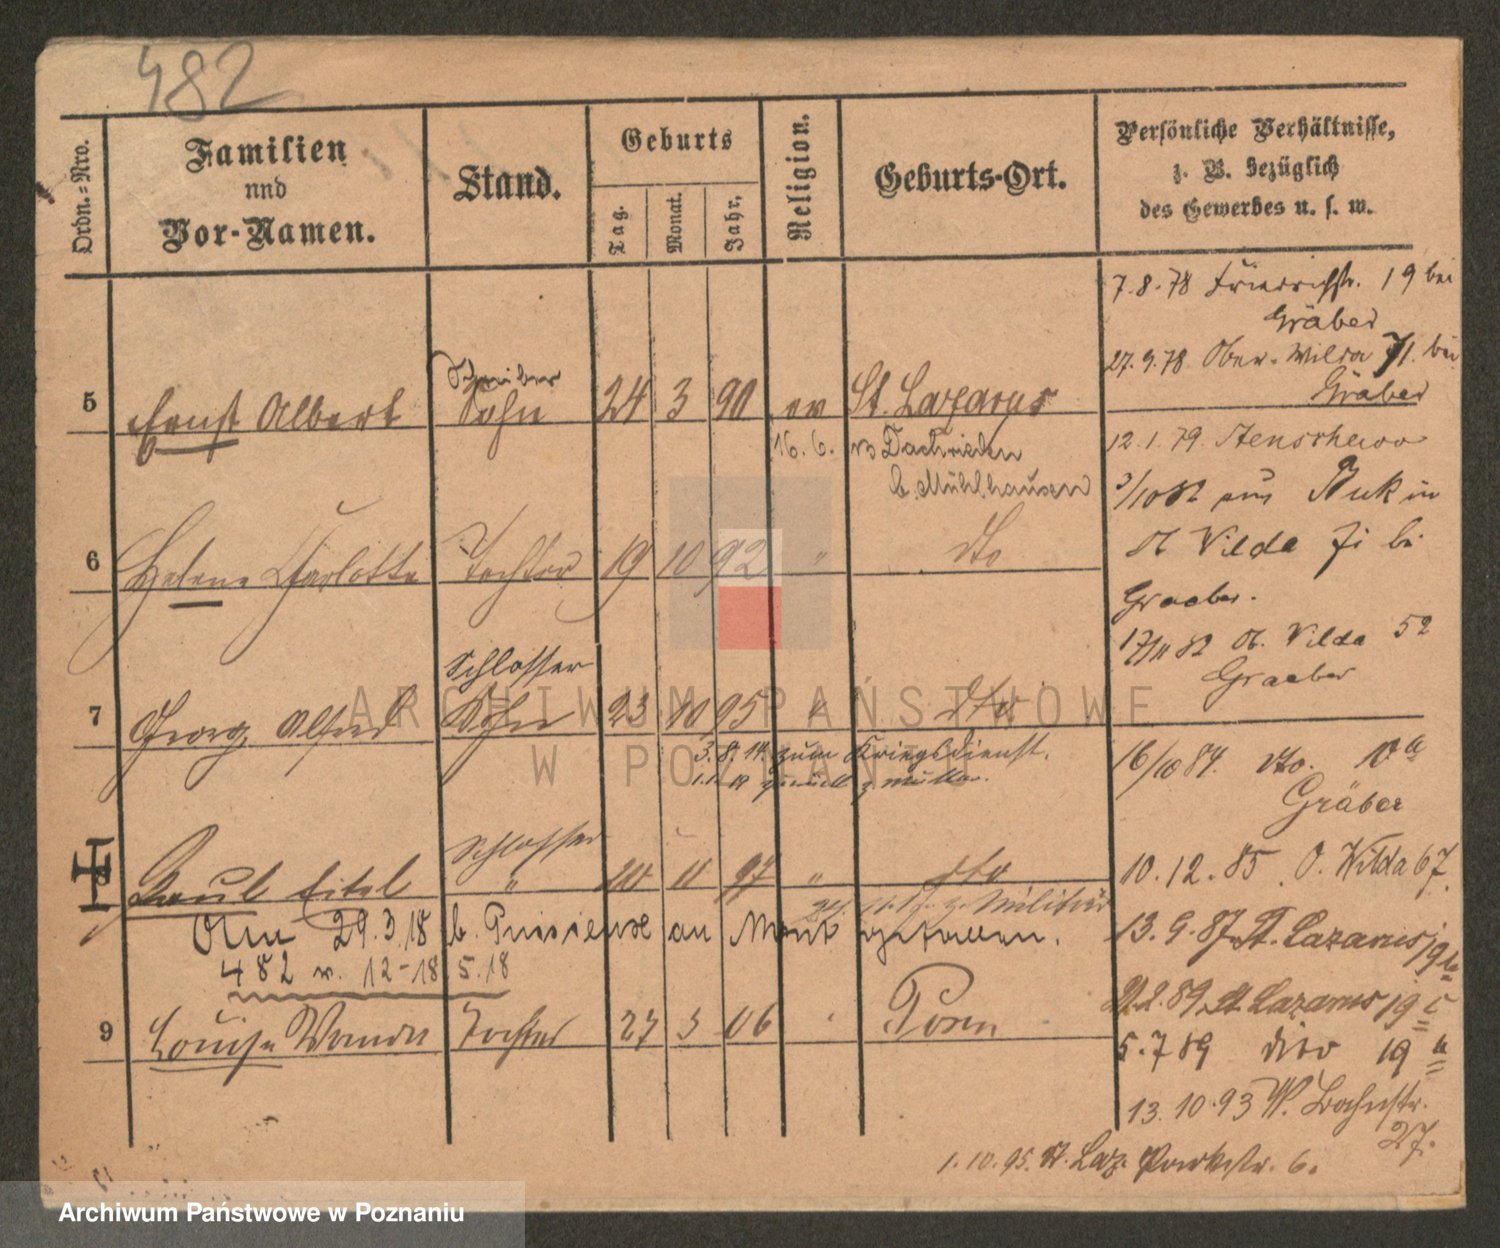 482
Ordn.=Nro.
Familien
und
Vor-Namen.
Stand.
Geburts
Tag.
Monat.
Jahr.
Religion.
Geburts-Ort.
Persönliche Verhältnisse,
z. B. bezüglich
des Gewerbes u. s. w.
7.8.78 Friedrichstr. 19 bei
Gräber
27.9.78 Ober-Wilda 71. bei
Gräber
Schreiber
5 Ernst Albert Sohn 24 3 90 ev St. Lazarus
16.6. Dachrieden
b. Mühlhausen
12.1.79. Stenschewo
3/10 82 aus Buk in
Ob Vilda bei
Graeber.
17/11 82 Ob. Vilda 52
Graeber
6 Helene Charlotte Tochter 19 10 92 " dto
Schlosser
7 Georg Alfred Sohn 23 10 95 " dto
3.8.14. zum Kriegsdienst.
zurück z. Mutter.
16/10 84. dto. 10a
Gräber
10.12.85. O. Wilda 67.
Schlosser
8 Paul Eitel " 20 11 97 " dto
z. Militär
Am 29.3.18 b. Puisieux au Mont gefallen.
482 v. 12-18 5.18
13.9.87 St. Lazarus 19
2.89 St Lazarus 19 c
5.7 89 dito 19 a
13.10.93 W. Bahnstr.
27.
9 Louise Wanda Tochter 27 3 06 " Posen
1.10.95. St. Laz. Parkstr. 6.
ARCHIWUM PAŃSTWOWE
W POZNANIU
Archiwum Państwowe w Poznaniu